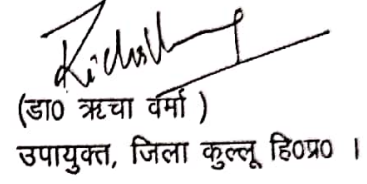 (डा० ऋचा वर्मा )
उपायुक्त, जिला कुल्लू हि०प्र० ।